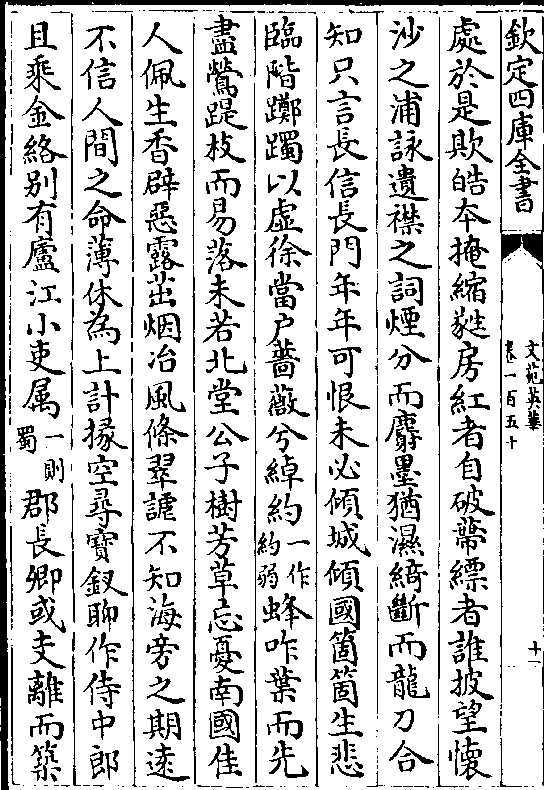 欽定四庫全書
文苑英華
卷一百五十
十一
處於是欺皓夲掩縮蕤房紅者自破蔕縹者誰披望懷
沙之浦詠遺襟之詞煙分而麝墨猶濕綺斷而龍刀合
知只言長信長門年年可恨未必傾城傾國箇箇生悲
臨階躑躅以虛徐當户薔薇兮綽約一作約弱蜂咋葉而先
盡鶯踶枝而易落未若北堂公子樹芳草忘憂南國佳
人佩生香辟惡露茁烟冶風條翠謔不知海旁之期逺
不信人間之命薄休為上計掾空尋寳釵聊作侍中郎
且乘金絡别有廬江小吏属一則蜀郡長卿或支離而築